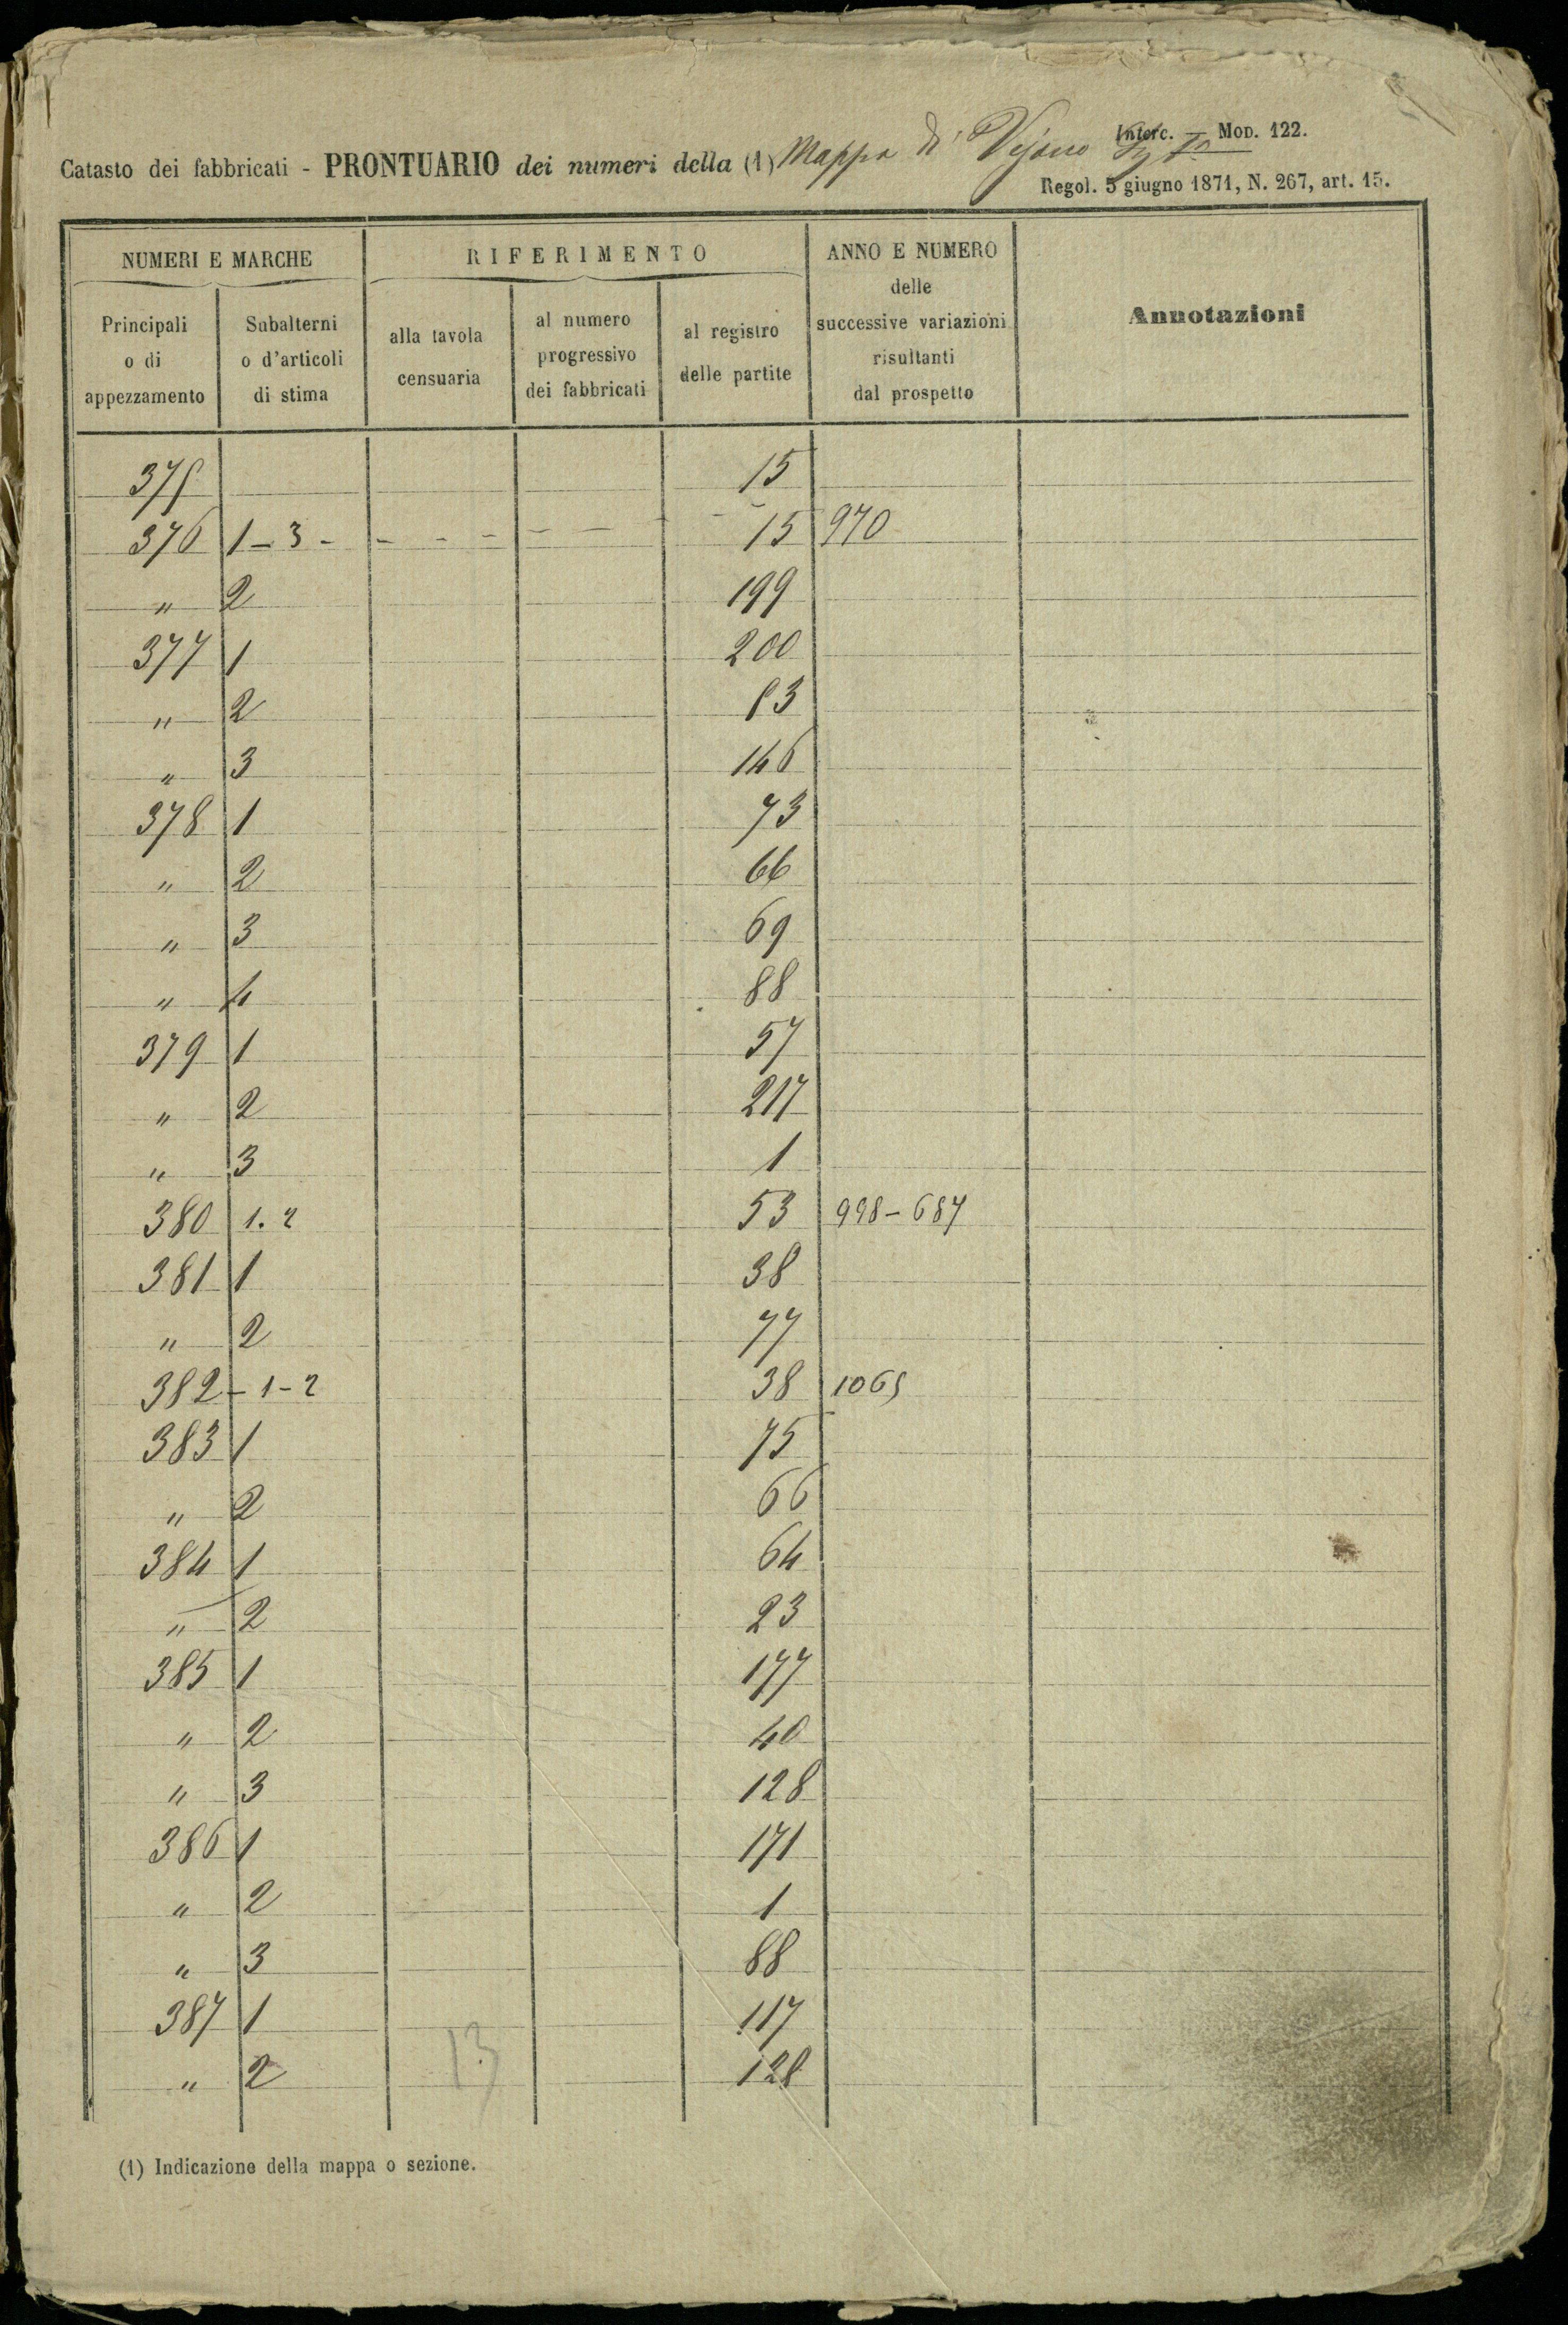 Interc. — Mod. 122.
Catasto dei fabbricati - PRONTUARIO dei numeri della (1) Mappa di Vejano
Regol. 5 giugno 1871, N. 267, art. 15.
NUMERI E MARCHE RIFERIMENTO ANNO E NUMERO delle successive variazioni risultanti dal prospetto Annotazioni
Principali o di appezzamento Subalterni o d'articoli di stima alla tavola censuaria al numero progressivo dei fabbricati al registro delle partite
375 15
376 1 - 3 - - - - - - - - 15 970
" 2 199
377 1 200
" 2 83
" 3 146
378 1 73
" 2 66
" 3 69
" 4 88
379 1 57
" 2 217
" 3 1
380 1. 2 53 998 - 687
381 1 38
" 2 77
382 - 1 - 2 38 1065
383 1 75
" 2 66
384 1 64
" 2 23
385 1 177
" 2 40
" 3 128
386 1 171
" 2 1
" 3 88
387 1 117
" 2 128
13
(1) Indicazione della mappa o sezione.